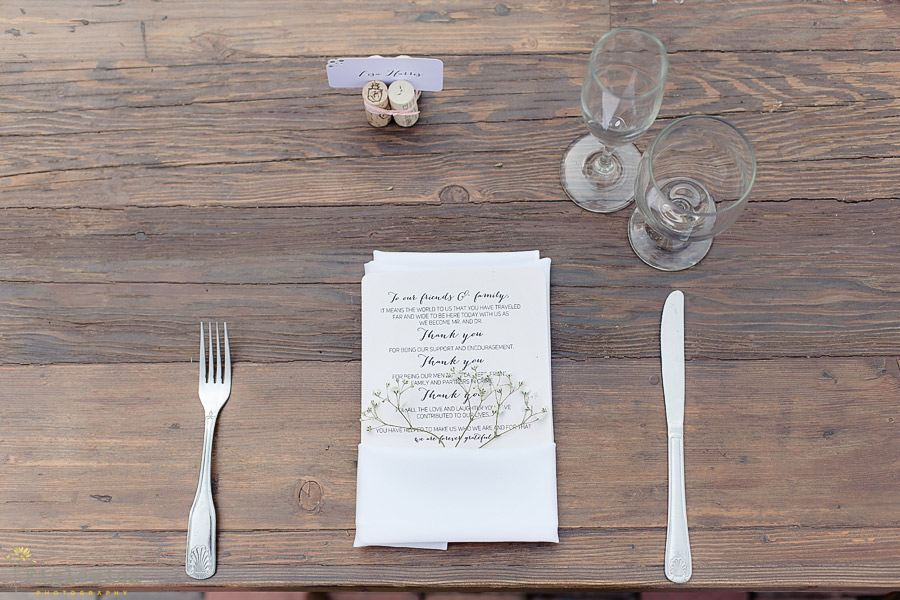 Lisa Harris
To our friends & family,
IT MEANS THE WORLD TO US THAT YOU HAVE TRAVELED
FAR AND WIDE TO BE HERE TODAY WITH US AS
WE BECOME MR. AND DR.
Thank you
FOR BEING OUR SUPPORT AND ENCOURAGEMENT.
Thank you
FOR BEING OUR
FAMILY AND PARTNERS IN
Thank you
ALL THE LOVE AND LAUGHTER YOU HAVE
CONTRIBUTED TO OUR LIVES.
YOU HAVE HELPED TO MAKE US WHO WE ARE AND FOR THAT
we are forever grateful
PHOTOGRAPHY